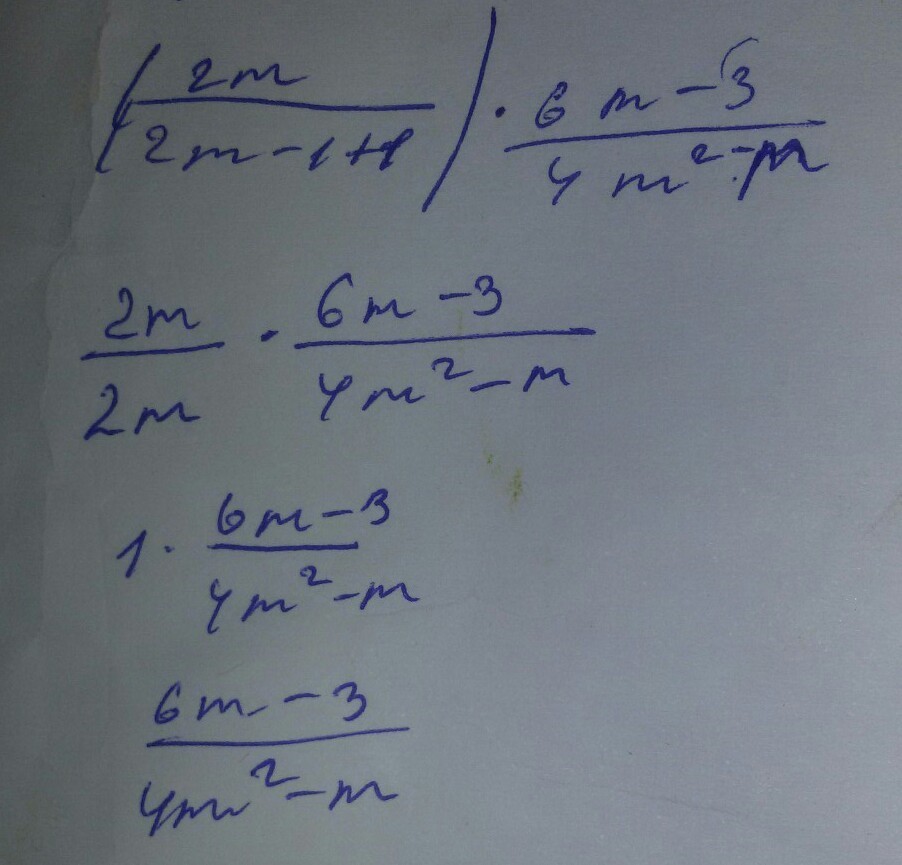 (2m / 2m-1+1) · 6m-3 / 4m²-m
2m / 2m · 6m-3 / 4m²-m
1 · 6m-3 / 4m²-m
6m-3 / 4m²-m